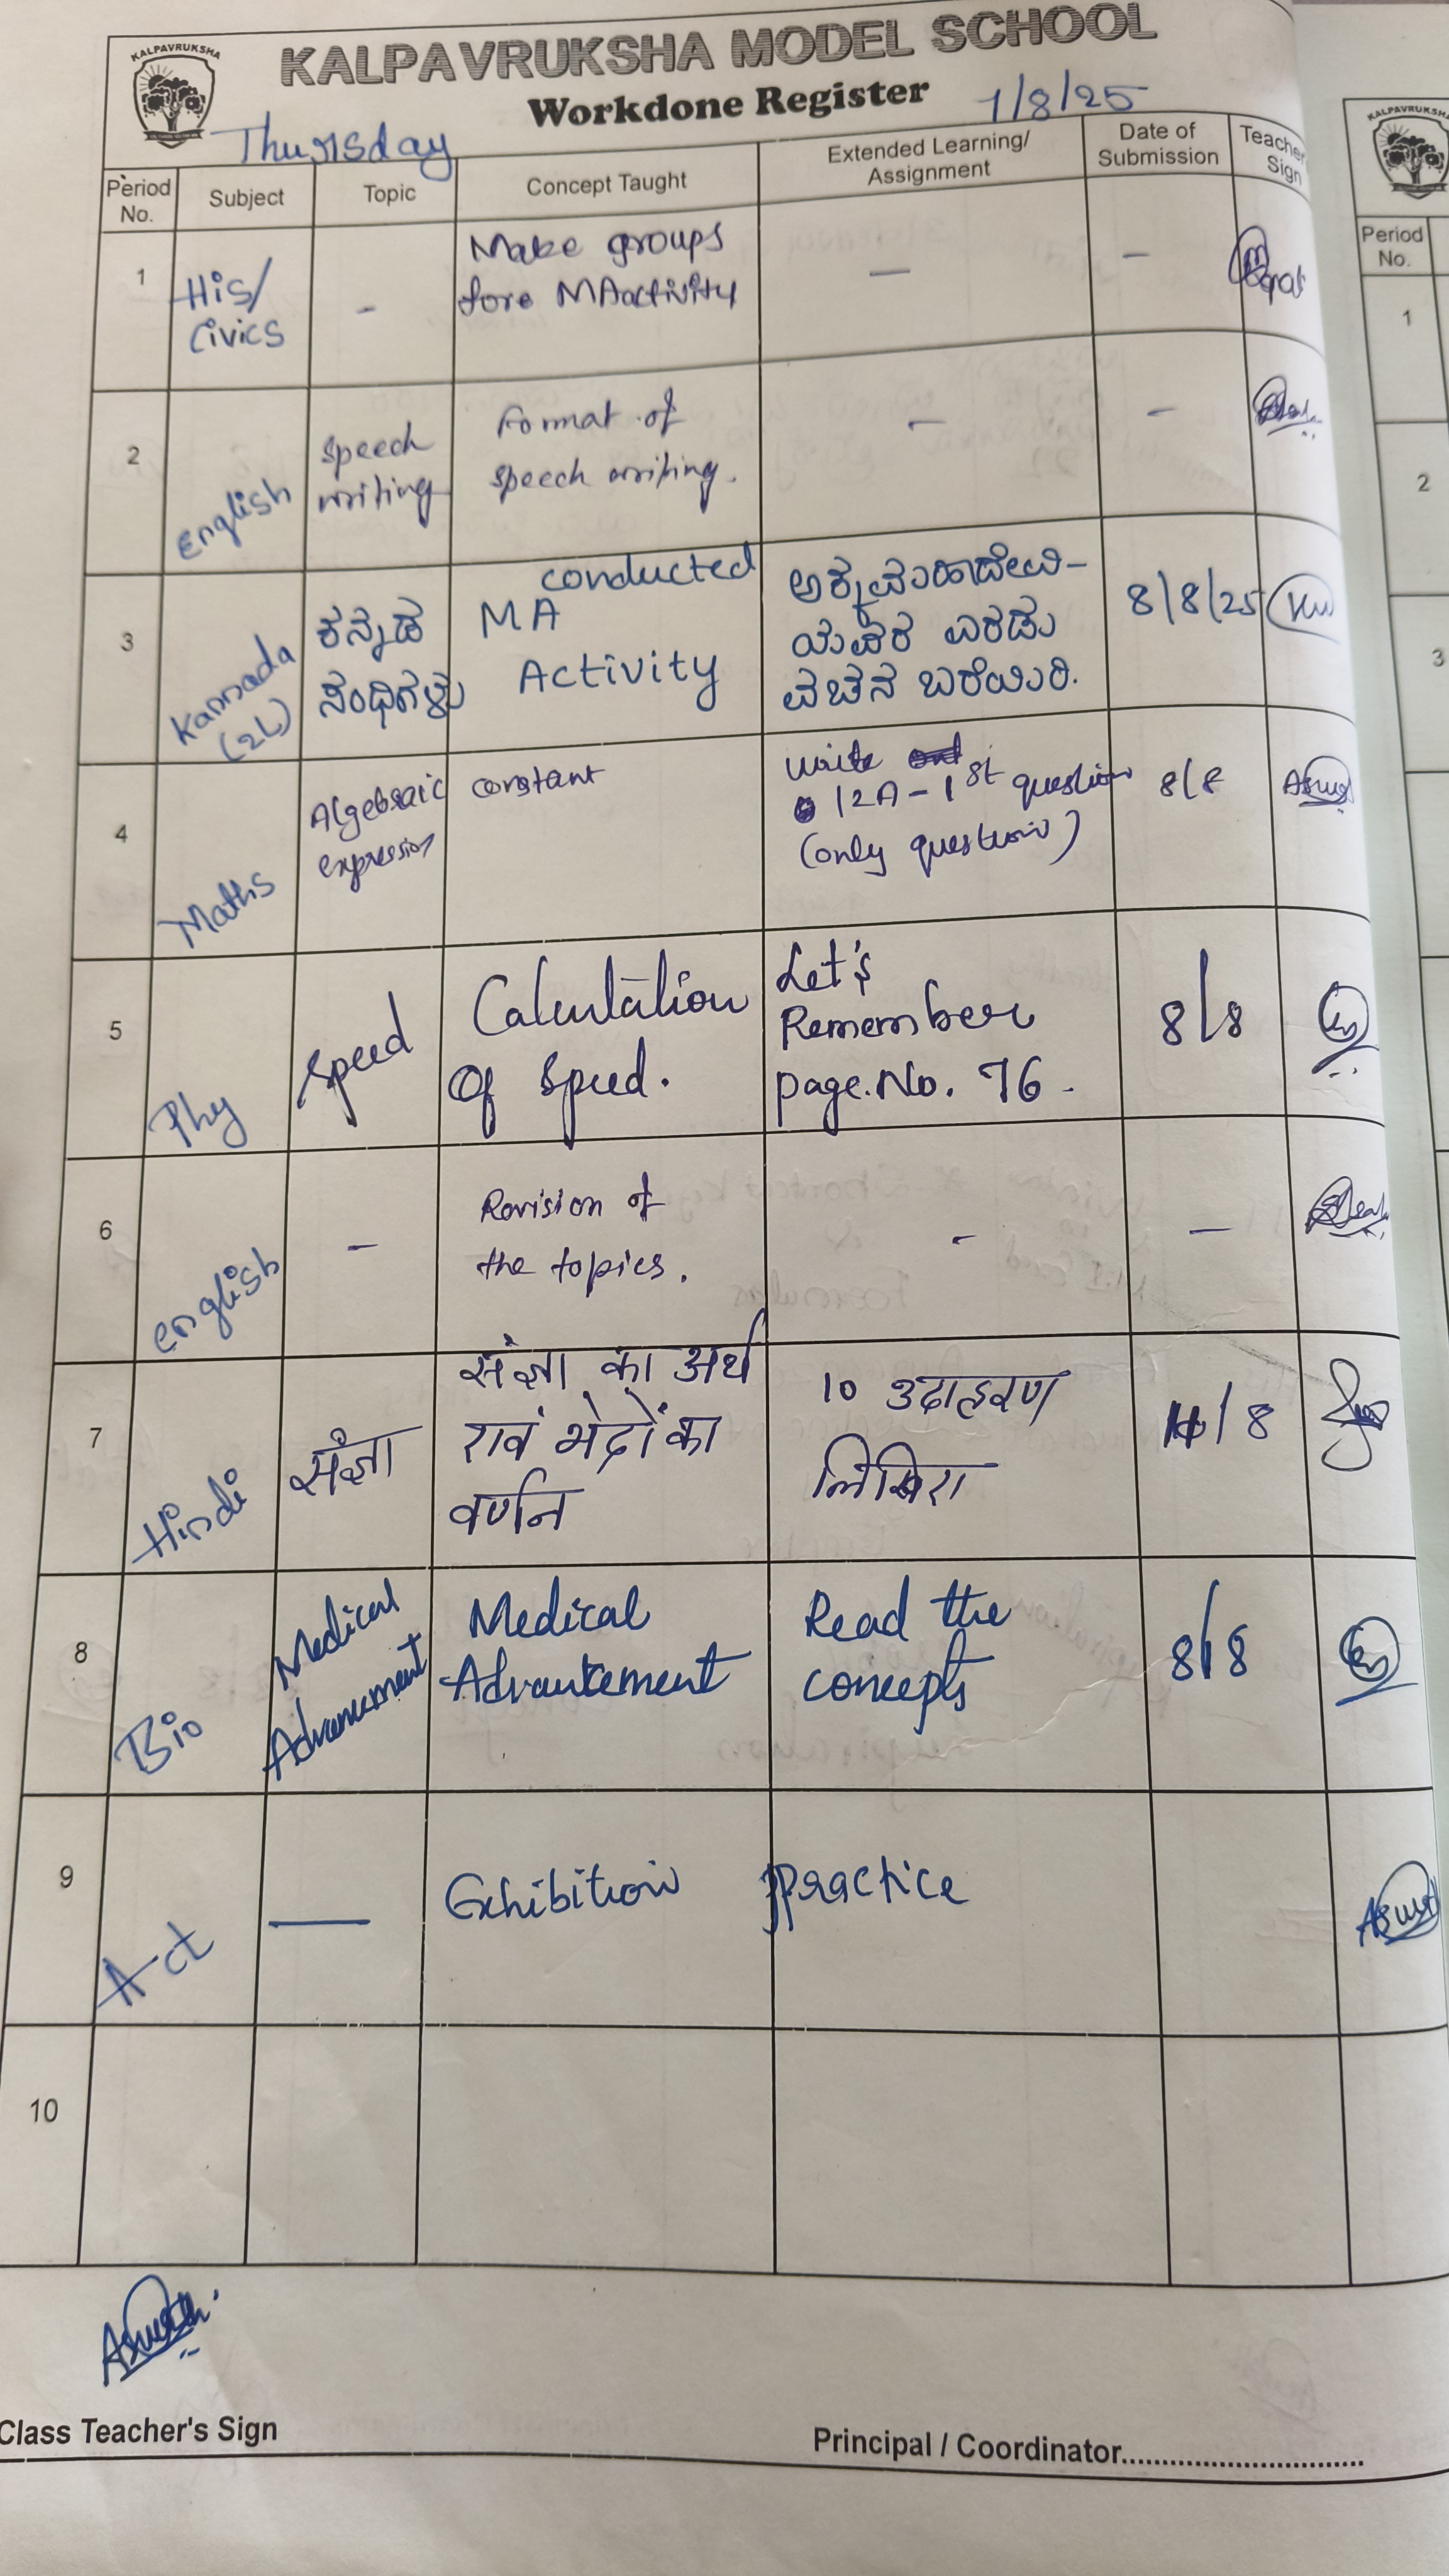 KALPAVRUKSHA
KALPAVRUKSHA MODEL SCHOOL
Workdone Register
Thursday
7/8/25
Period No.
Subject
Topic
Concept Taught
Extended Learning/ Assignment
Date of Submission
Teacher Sign
1
His/
Civics
-
Make groups
fore MA activity
-
-
2
English
Speech
writing
Format of
speech writing.
-
-
3
Kannada
(2L)
ಕನ್ನಡ
ಸಂಧಿಗಳು
conducted
MA
Activity
ಅಕ್ಕಮಹಾದೇವಿ-
ಯವರ ಎರಡು
ವಚನ ಬರೆಯಿರಿ.
8/8/25
4
Maths
Algebraic
expression
constant
write
12A - 1st question
(only question)
8/8
5
Phy
Speed
Calculation
Of Speed.
Let's
Remember
page.No. 76.
8/8
6
English
-
Revision of
the topics.
-
-
7
Hindi
संज्ञा
संज्ञा का अर्थ
एवं भेदों का
वर्णन
10 उदाहरण
लिखिए
/8
8
Bio
Medical
Advancement
Medical
Advancement
Read the
concepts
8/8
9
Act
—
Exhibition practice
10
Class Teacher's Sign
Principal / Coordinator..............................
KALPAVRUKSHA
Period
No.
1
2
3